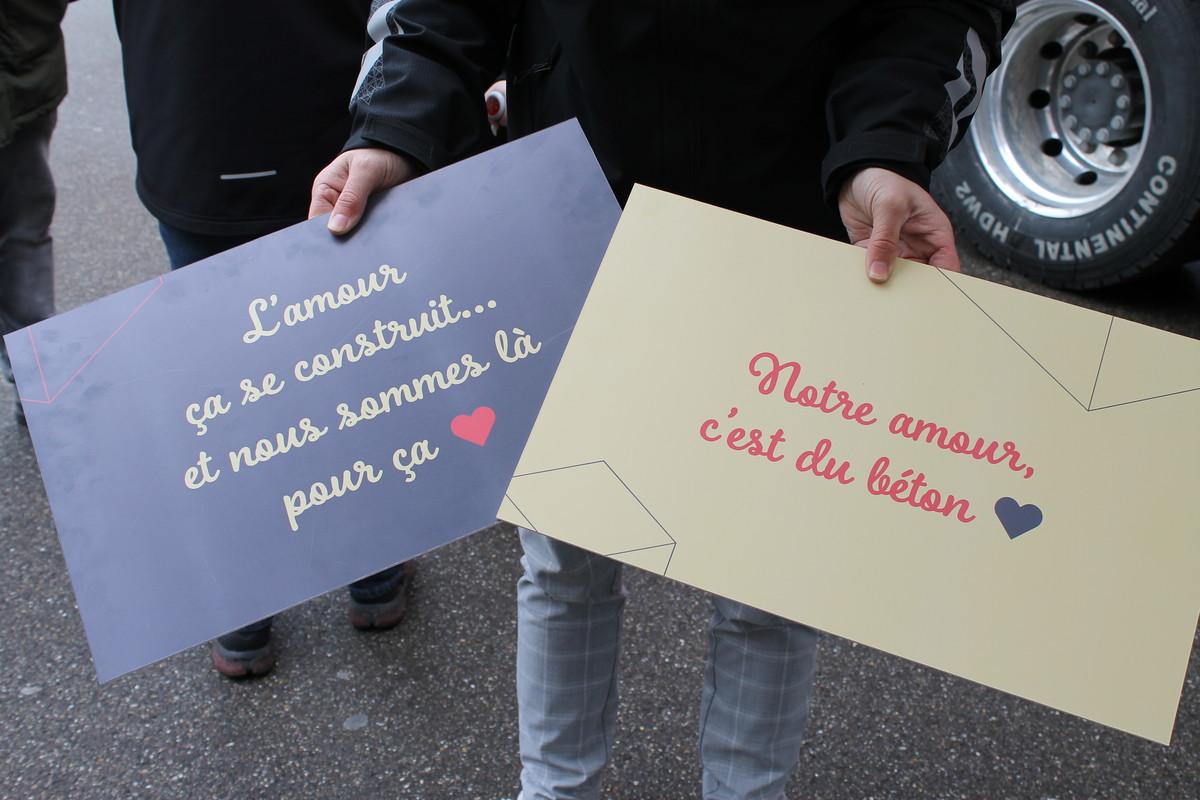 L'amour
ça se construit...
et nous sommes là
pour ça
Notre amour,
c'est du béton
CONTINENTAL HDW2